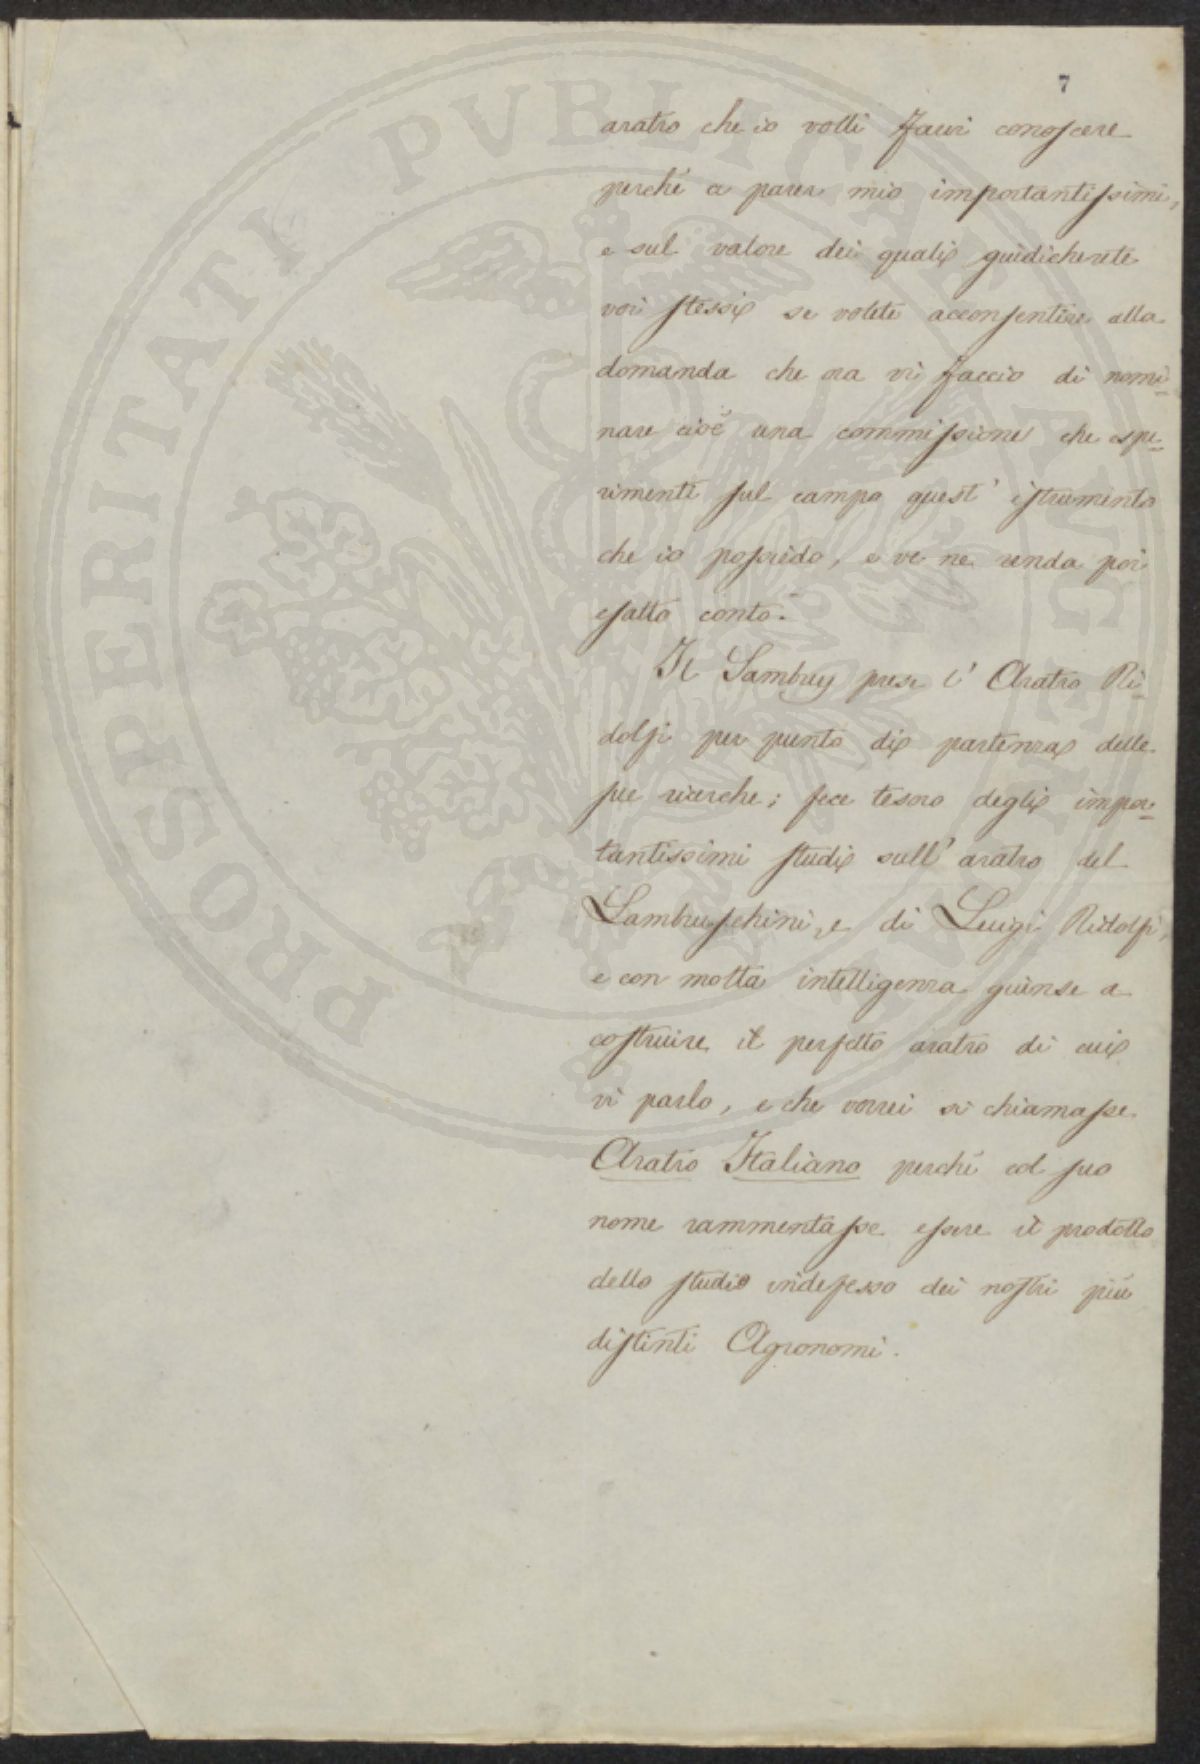 7
aratro che io volli farvi conoscere
perchè a parer mio importantissimi,
e sul valore dei quali giudicherete
voi stessi se volete acconsentire alla
domanda che ora vi faccio di nomi-
nare cioè una commissione che espe-
rimenti sul campo quest' istrumento
che io possiedo, e ve ne renda poi
esatto conto.
Il Sambuy prese l' Aratro Ri-
dolfi per punto di partenza delle
sue ricerche; fece tesoro degli impor-
tantissimi studi sull' aratro del
Lambruschini, e di Luigi Ridolfi,
e con molta intelligenza giunse a
costruire il perfetto aratro di cui
vi parlo, e che vorrei si chiamasse
Aratro Italiano perchè col suo
nome rammentasse essere il prodotto
dello studio indefesso dei nostri più
distinti Agronomi.
PROSPERITATI PVBLICAE AVGENDAE